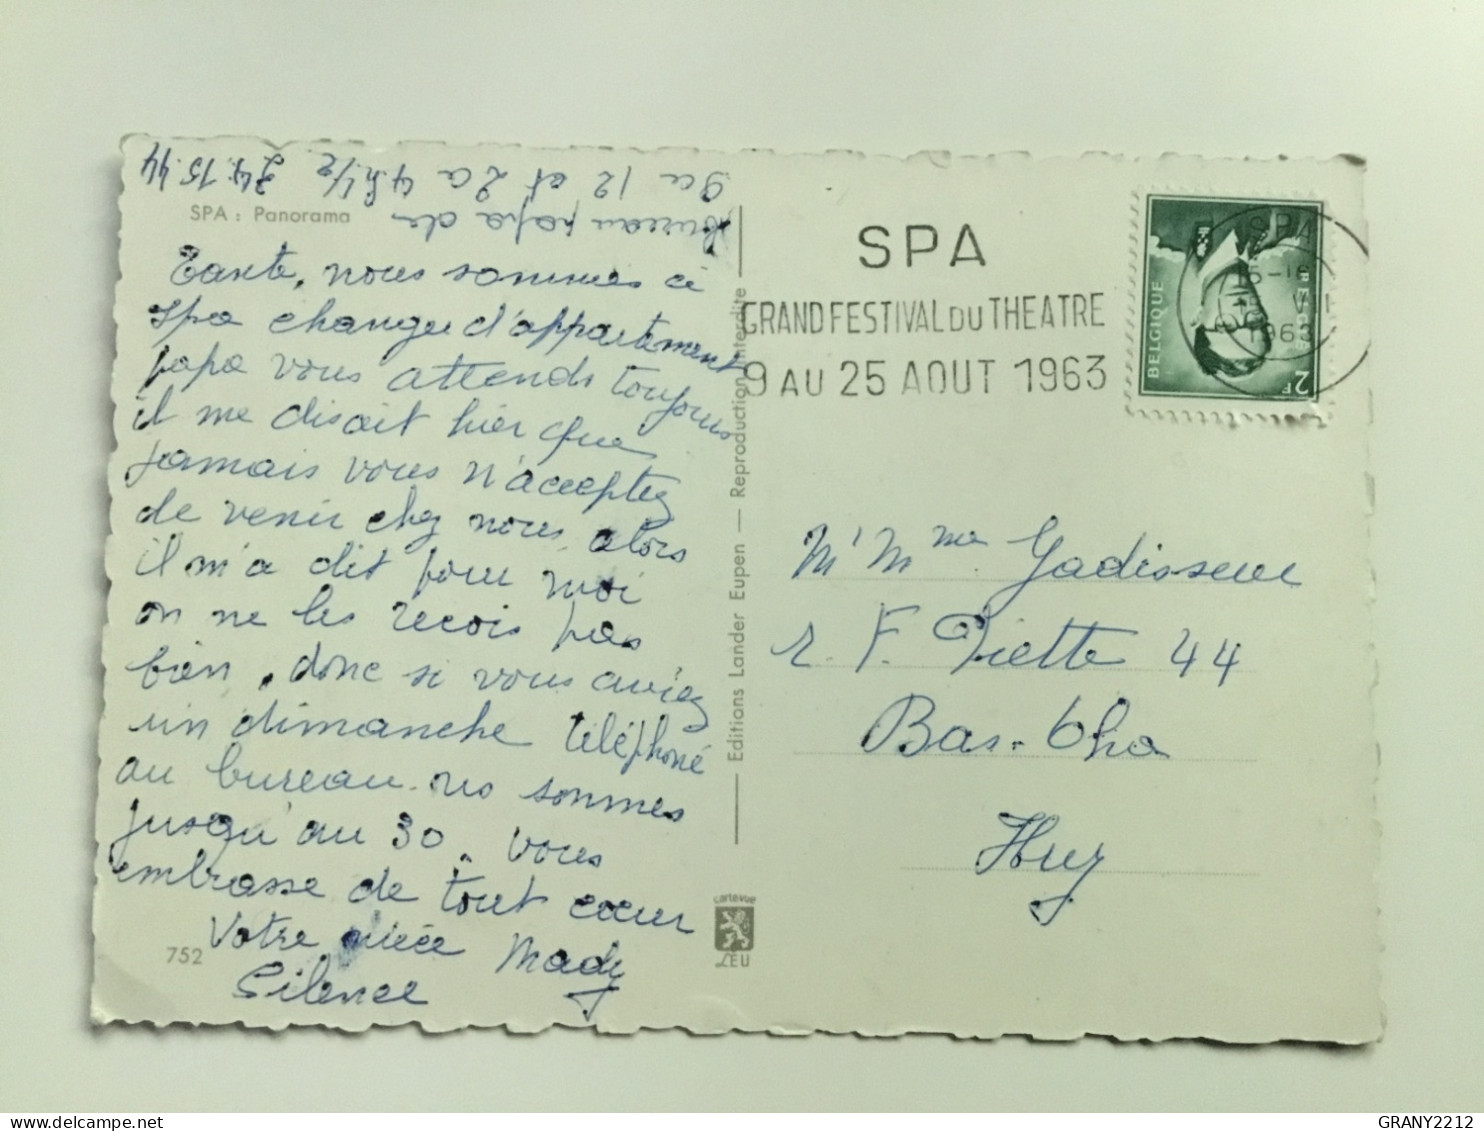 SPA : Panorama
Tante, nous sommes a
Spa changer d'appartement
papa vous attends toujours
il me disait hier que
jamais vous n'acceptez
de venir chez nous alors
il m'a dit pour moi
on ne les recois pas
bien, donc si vous aviez
un dimanche téléphoné
au bureau. ns sommes
jusqu'au 30. vous
embrasse de tout coeur
Votre nièce Mady
Silence
752
Bureau papa de
9 a 12 et 2 a 4 h 1/2 34.15.44
Editions Lander Eupen — Reproduction interdite
cartevue
LEU
SPA
GRAND FESTIVAL DU THEATRE
9 AU 25 AOUT 1963
BELGIQUE
2F
SPA
15-16
1963
Mr Mme Gadisseur
r. F. Piette 44
Bas-Oha
Huy
GRANY2212